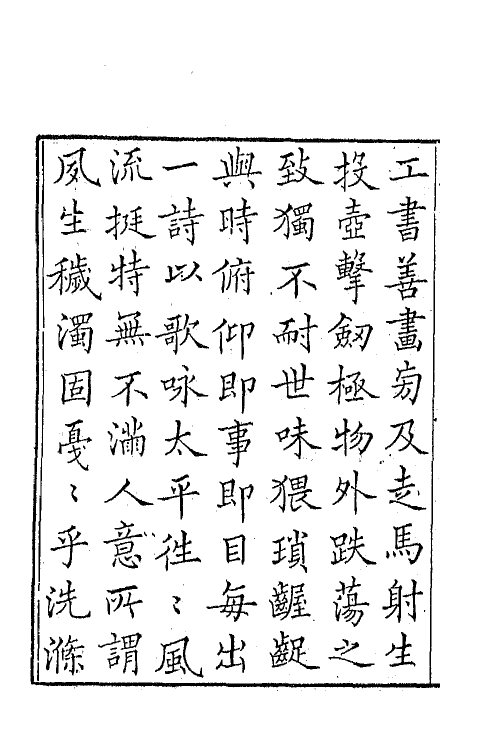 工書善畫旁及走馬射生
投壺擊劔極物外跌蕩之
致獨不耐世味猥瑣齷齪
與時俯仰即事即目每出
一詩以歌咏太平徃〻風
流挺特無不滿人意所謂
夙生穢濁固戞〻乎洗滌